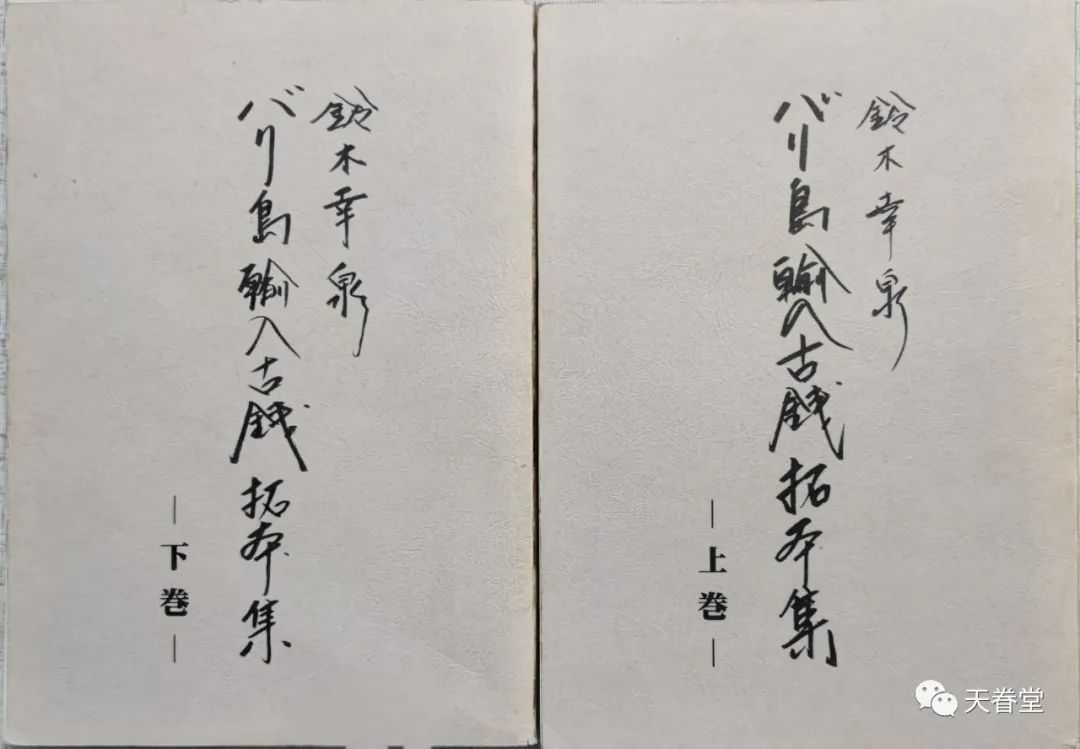 鈴木幸泉
バリ島輸入古銭拓本集
上巻
鈴木幸泉
バリ島輸入古銭拓本集
下巻
天眷堂